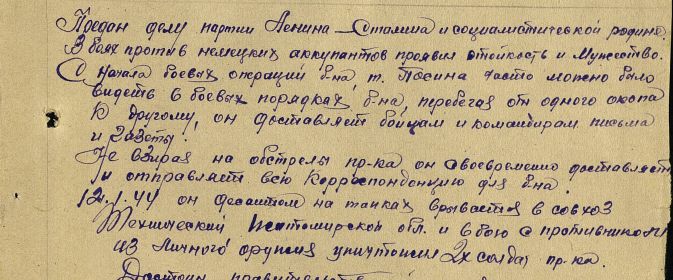 Предан делу партии Ленина-Сталина и социалистической родине.
В боях против немецких аккупантов проявил стойкость и Мужество.
С начала боевых операций б-на, т. Пасина часто можно было
видеть в боевых порядках б-на, перебегая от одного окопа
к другому, он доставляет бойцам и командирам письма
и газеты.
Не взирая на обстрелы пр-ка он своевременно доставляет
и отправляет всю корреспонденцию для б-на.
12.1.44 он десантом на танках врывается в совхоз
Технический Житомирской обл. и в бою с противником
из личного оружия уничтожил 2х солдат пр-ка.
Достоин